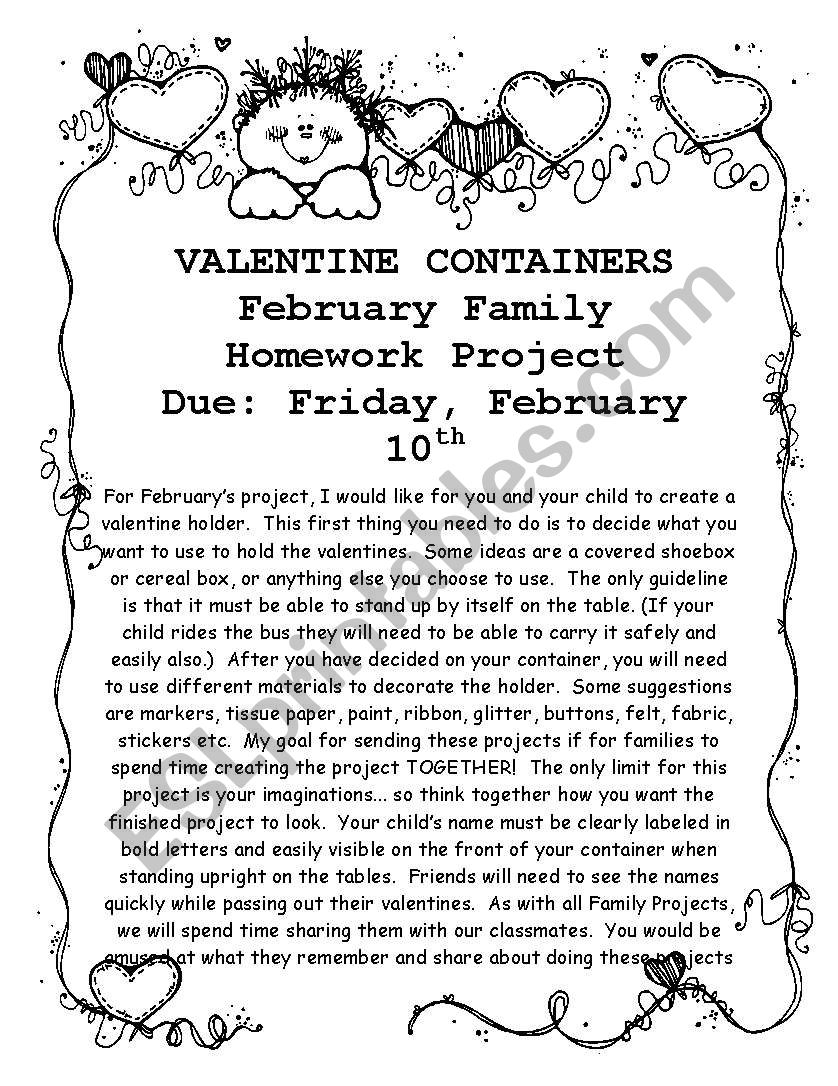 VALENTINE CONTAINERS
February Family
Homework Project
Due: Friday, February
10th
For February's project, I would like for you and your child to create a
valentine holder. This first thing you need to do is to decide what you
want to use to hold the valentines. Some ideas are a covered shoebox
or cereal box, or anything else you choose to use. The only guideline
is that it must be able to stand up by itself on the table. (If your
child rides the bus they will need to be able to carry it safely and
easily also.) After you have decided on your container, you will need
to use different materials to decorate the holder. Some suggestions
are markers, tissue paper, paint, ribbon, glitter, buttons, felt, fabric,
stickers etc. My goal for sending these projects if for families to
spend time creating the project TOGETHER! The only limit for this
project is your imaginations... so think together how you want the
finished project to look. Your child's name must be clearly labeled in
bold letters and easily visible on the front of your container when
standing upright on the tables. Friends will need to see the names
quickly while passing out their valentines. As with all Family Projects,
we will spend time sharing them with our classmates. You would be
amused at what they remember and share about doing these projects
ESLprintables.com